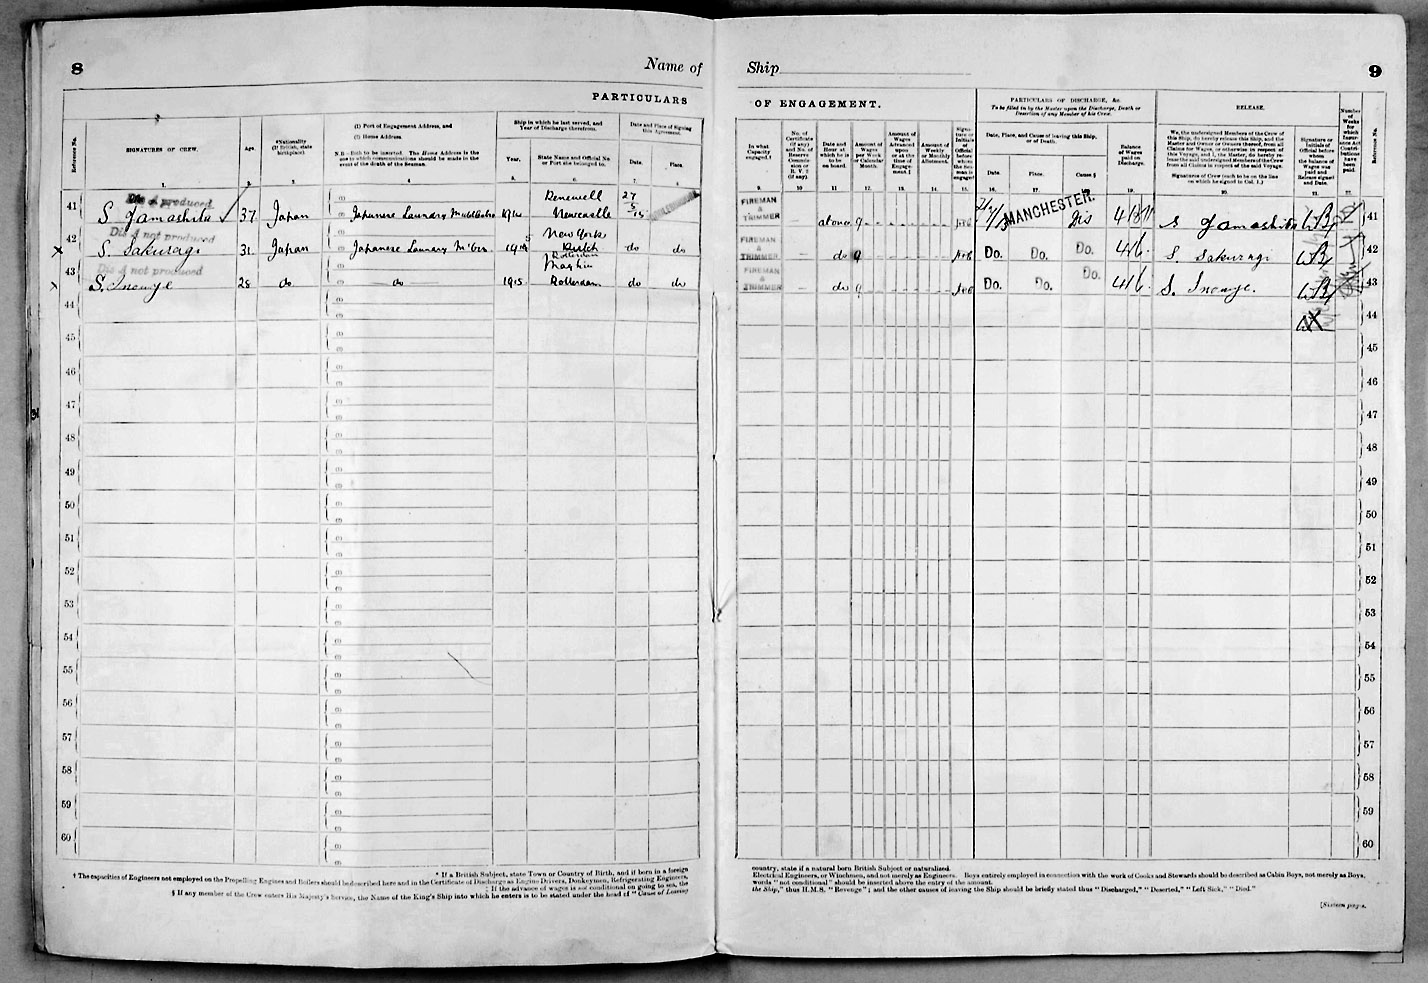 8
Name of
Ship
9
PARTICULARS
OF ENGAGEMENT.
PARTICULARS OF DISCHARGE, &c.
To be filled in by the Master upon the Discharge, Death or Desertion of any Member of his Crew.
RELEASE.
Reference No.
SIGNATURES OF CREW.
Age.
*Nationality (If British, state birthplace)
(1) Port of Engagement Address, and
(2) Home Address.
N.B.—Both to be inserted. The Home Address is the one to which communications should be made in the event of the death of the Seaman.
Ship in which he last served, and Year of Discharge therefrom.
Year.
State Name and Official No. or Port she belonged to.
Date and Place of Signing this Agreement.
Date.
Place.
In what Capacity engaged.†
No. of Certificate (if any) and No. of Reserve Commission or R.V. 2 (if any).
Date and Hour at which he is to be on board.
Amount of Wages per Week or Calendar Month.
Amount of Wages Advanced upon or at the time of Engagement.‡
Amount of Weekly or Monthly Allotment.
Signature or Initials of Official before whom the Seaman is engaged
Date, Place, and Cause of leaving this Ship, or of Death.
Date.
Place.
Cause §
Balance of Wages paid on Discharge.
We, the undersigned Members of the Crew of this Ship, do hereby release this Ship, and the Master and Owner or Owners thereof, from all Claims for Wages, or otherwise in respect of this Voyage, and I, the Master, do hereby release the said undersigned Members of the Crew from all Claims in respect of the said Voyage.
Signatures of Crew (each to be on the line on which he signed in Col. 1.)
Signature or Initials of Official before whom the balance of Wages was paid and Release signed and Date.
Number of Weeks for which Insurance Act Contributions have been paid.
Reference No.
1. 2. 3. 4. 5. 6. 7. 8. 9. 10 11 12. 13. 14. 15. 16. 17. 18. 19. 20. 21. 22.
Dis A produced
41 S Yamashita 37 Japan Japanese Laundry Middlesbro 1914 Newcastle 27/5/15 FIREMAN & TRIMMER at once 9 MANCHESTER. Dis S Yamashita WB 41
Dis A not produced
New York
42 S. Sakuragi 31 Japan Japanese Laundry M'bro Dutch do do FIREMAN & TRIMMER do 9 Do. Do. Do. 4 16 S. Sakuragi WB 42
Dis A not produced
Rotterdam
43 S. Inouye 28 do do 1915 Rotterdam do do FIREMAN & TRIMMER do 9 Do. Do. Do. 4 16 S. Inouye. WB 43
44 44
45 45
46 46
47 47
48 48
49 49
50 50
51 51
52 52
53 53
54 54
55 55
56 56
57 57
58 58
59 59
60 60
* If a British Subject, state Town or Country of Birth, and if born in a foreign country, state if a natural born British Subject or naturalised.
† The capacities of Engineers not employed on the Propelling Engines and Boilers should be described here and in the Certificate of Discharge as Engine Drivers, Donkeymen, Refrigerating Engineers, Electrical Engineers, or Winchmen, and not merely as Engineers. Boys entirely employed in connection with the work of Cooks and Stewards should be described as Cabin Boys, not merely as Boys.
‡ If the advance of wages is not conditional on going to sea, the words "not conditional" should be inserted above the entry of the amount.
§ If any member of the Crew enters His Majesty's Service, the Name of the King's Ship into which he enters is to be stated under the head of "Cause of Leaving the Ship," thus H.M.S. "Revenge"; and the other causes of leaving the Ship should be briefly stated thus "Discharged," "Deserted," "Left Sick," "Died."
[Sixteen pages.